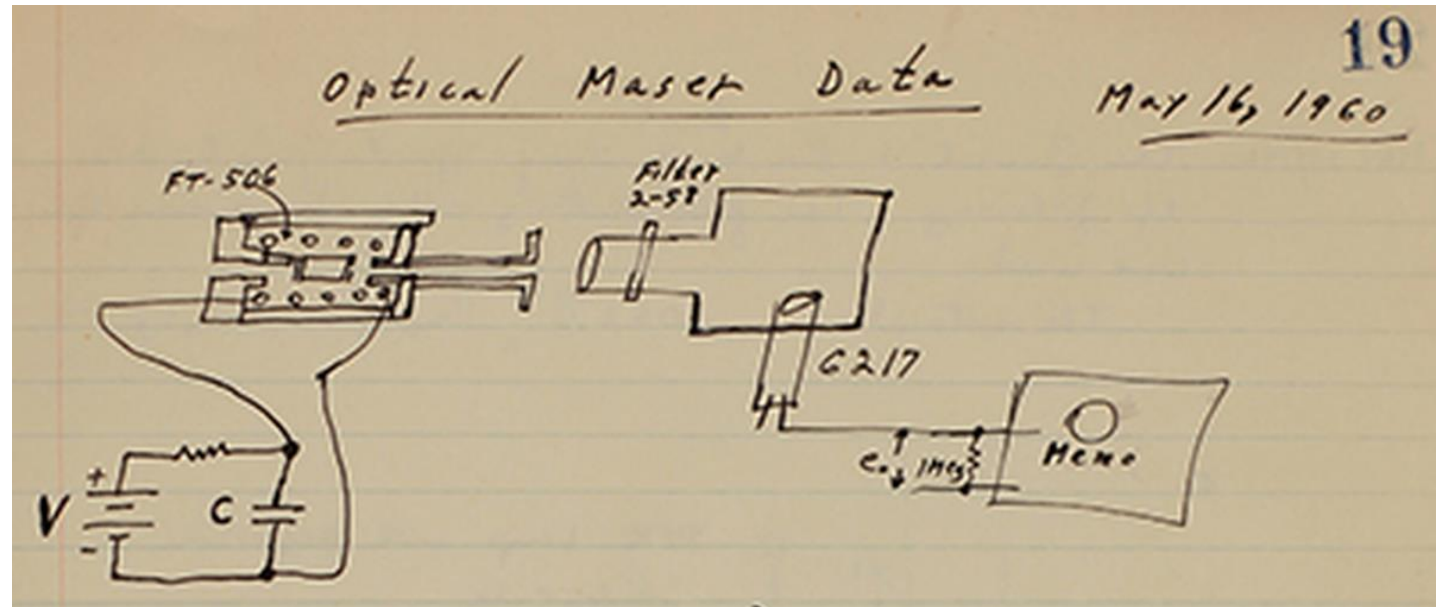 19
Optical Maser Data
May 16, 1960
FT-506
Filter
2-58
6217
+
V
-
C
e₀
1 Meg
Memo